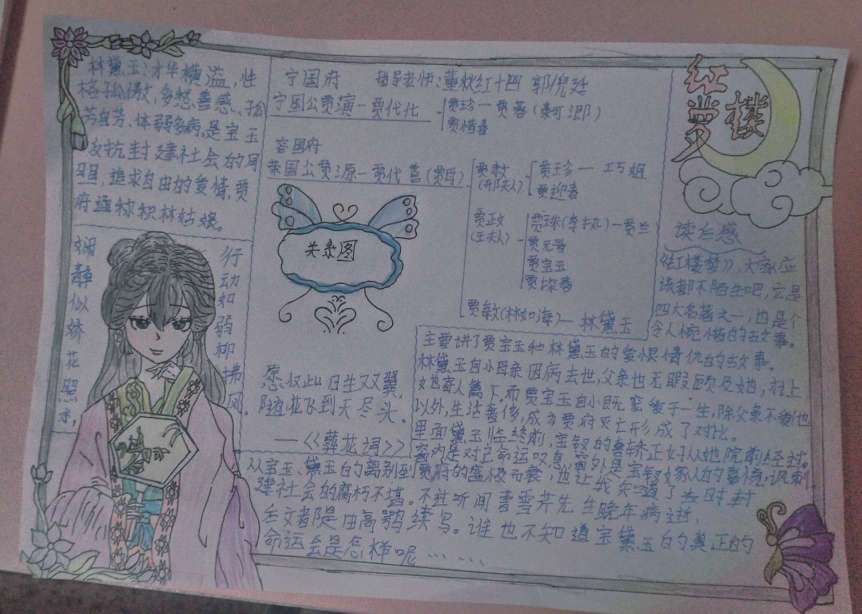 红楼梦
林黛玉:才华横溢,性
格孤傲,多愁善感,孤
芳自芳、体弱多病,是宝玉
反抗封建社会的同
盟,追求自由的爱情,贾
府通称称林姑娘。
娴静似娇花照水,
行动如弱柳拂风。
宁国府
指导老师:董秋红
宁国公贾演—贾代化
贾珍—贾蓉(秦可卿)
贾惜春
荣国府
荣国公贾源—贾代善(贾母)
贾赦
(邢夫人)
贾琏—巧姐
贾迎春
贾政
(王夫人)
贾珠(李纨)—贾兰
贾元春
贾宝玉
贾探春
贾敏(林如海)—林黛玉
关系图
愿侬此日生双翼,
随花飞到天尽头.
——《葬花词》
读后感
《红楼梦》,大家应
该都不陌生吧,它是
四大名著之一,也是个
令人惋惜的故事。
主要讲了贾宝玉和林黛玉的爱恨情仇的故事。
林黛玉自小母亲因病去世,父亲也无暇顾及她,往上
她寄人篱下,而贾宝玉自小
以外,生活奢侈,成为贾府灭亡形成了对比。
里面黛玉临终前,宝钗的
对己命运叹息,窗外是宝钗嫁人的喜
从宝玉、黛玉的离别到贾府的盛极而衰,也让我知道了当时封
建社会的腐朽不堪。不过听闻曹雪芹先生晚年病逝,
全文者是由高鹗续写。谁也不知道宝黛玉的真正的
命运会是怎样呢……